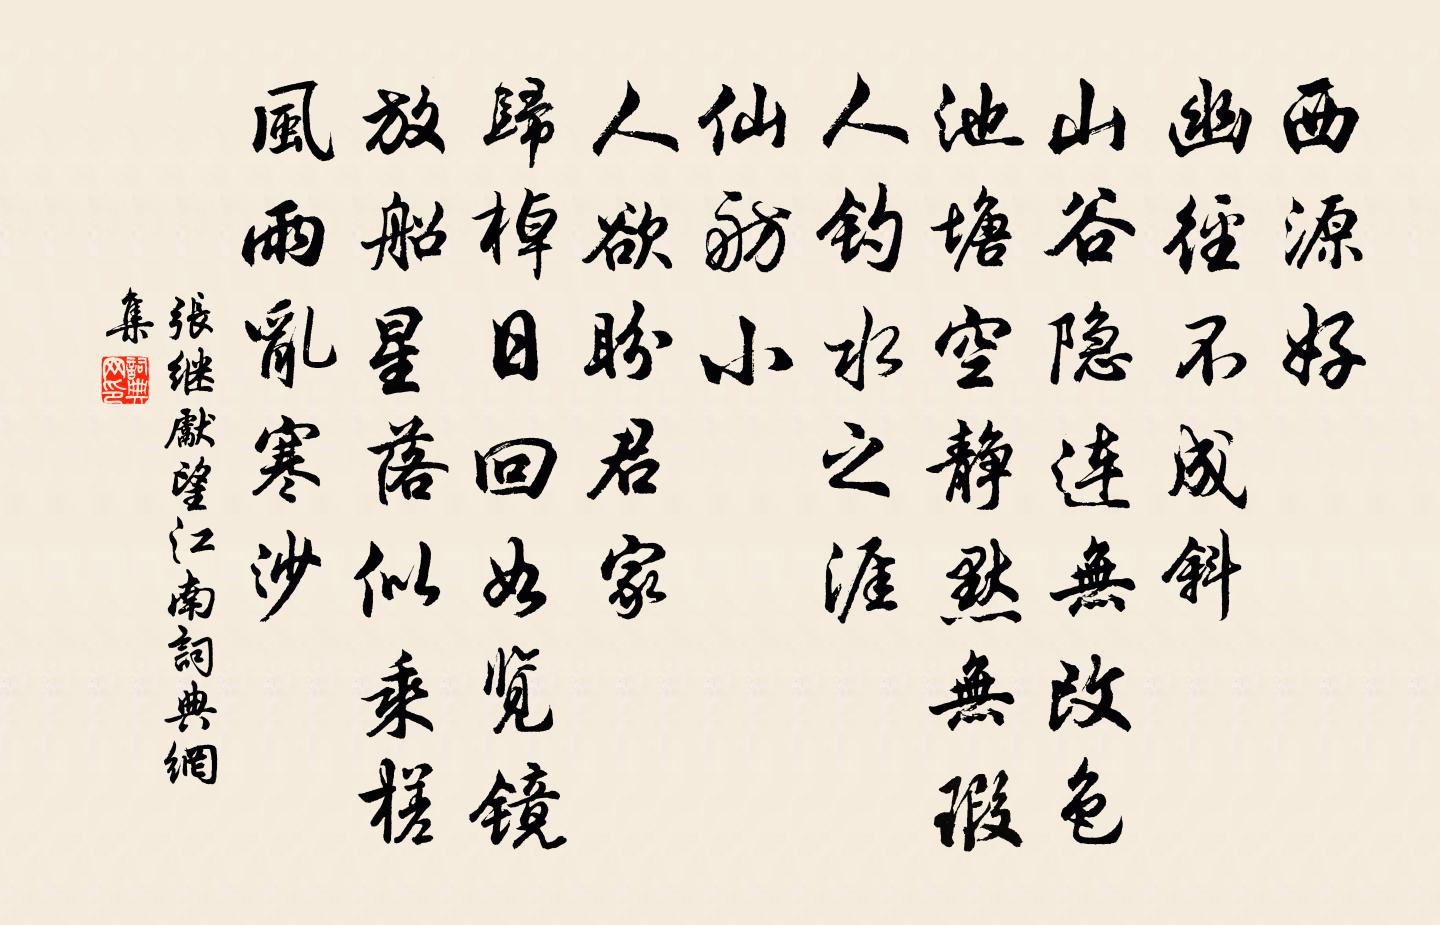 西源好
幽徑不成斜
山谷隐連無改色
池塘空静默無瑕
人釣水之涯
仙舫小
人欲盼君家
歸棹日回如览镜
放船星落似乘槎
風雨亂寒沙
張继獻望江南詞典網
集
詞典
网印